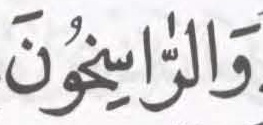 وَالرّٰسِخُونَ